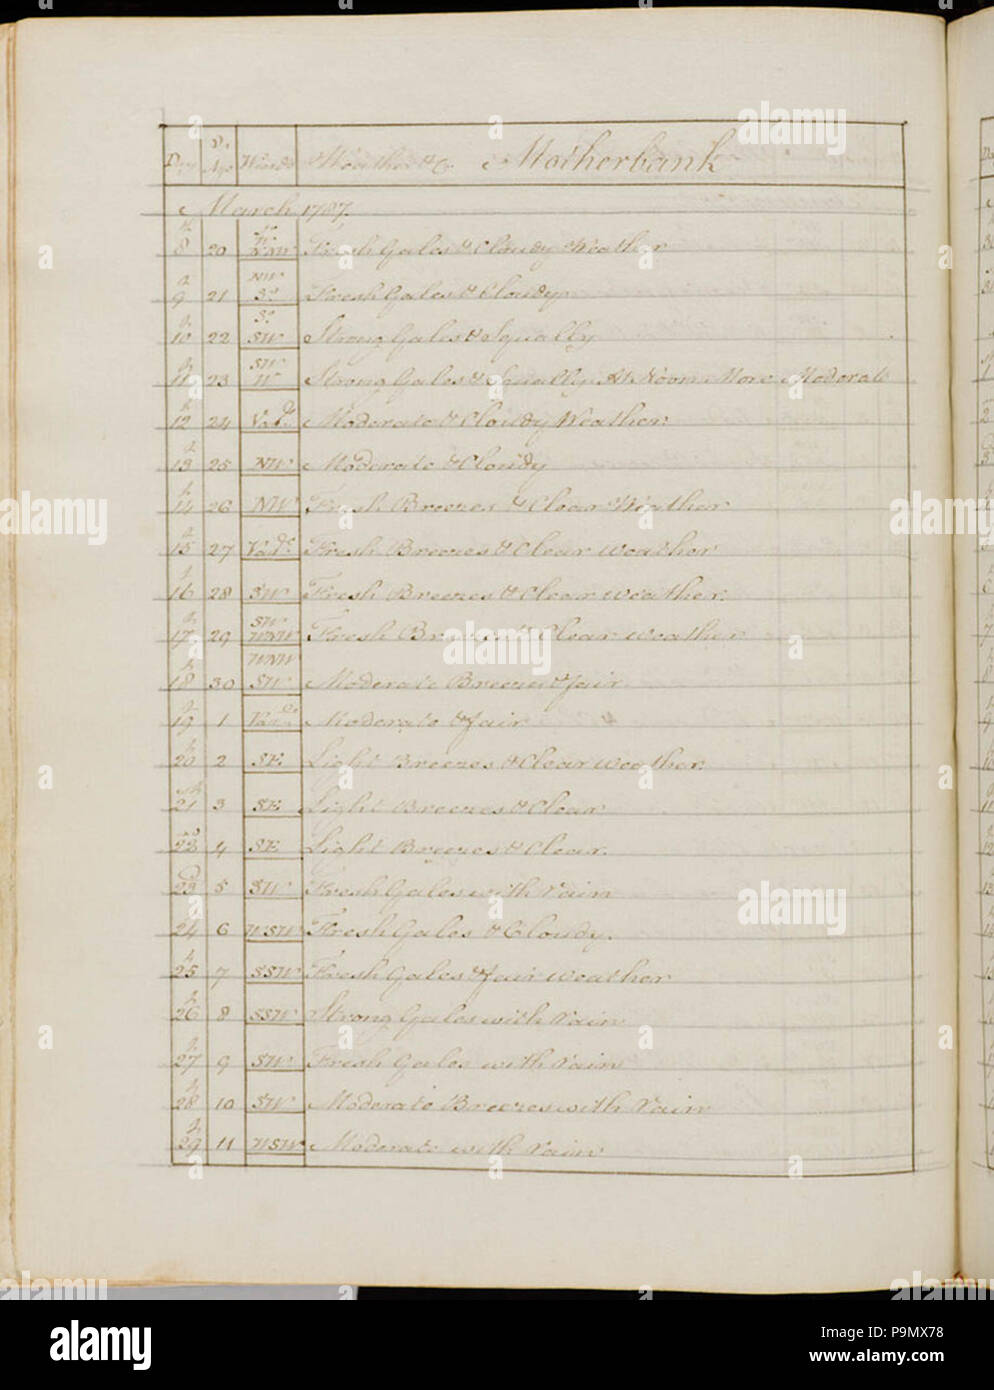 Day Ds Age Winds Weather &c Motherbank
March 1787.
8 20 NNW Fresh Gales & Cloudy Weather
9 21 NW So Fresh Gales & Cloudy
10 22 So SW Strong Gales & Squally
11 23 SW W Strong Gales & Squally At Noon More Moderate
12 24 Moderate & Cloudy Weather
13 25 NW Moderate & Cloudy
14 26 NW Fresh Breezes & Clear Weather
15 27 Fresh Breezes & Clear weather
16 28 SW Fresh Breezes & Clear weather.
17 29 SW WNW Fresh Breezes & Clear weather
18 30 WNW SW Moderate Breezes & fair
19 1 Moderate & fair
20 2 SE Light Breezes & Clear weather.
21 3 SE Light Breezes & Clear
22 4 SE Light Breezes & Clear.
23 5 SW Fresh Gales with rain
24 6 WSW Fresh Gales & Cloudy.
25 7 SSW Fresh Gales & fair weather
26 8 SSW Strong Gales with rain
27 9 SW Fresh Gales with rain
28 10 SW Moderate Breezes with rain
29 11 WSW Moderate with rain
alamy
alamy
Image ID: P9MX78
www.alamy.com